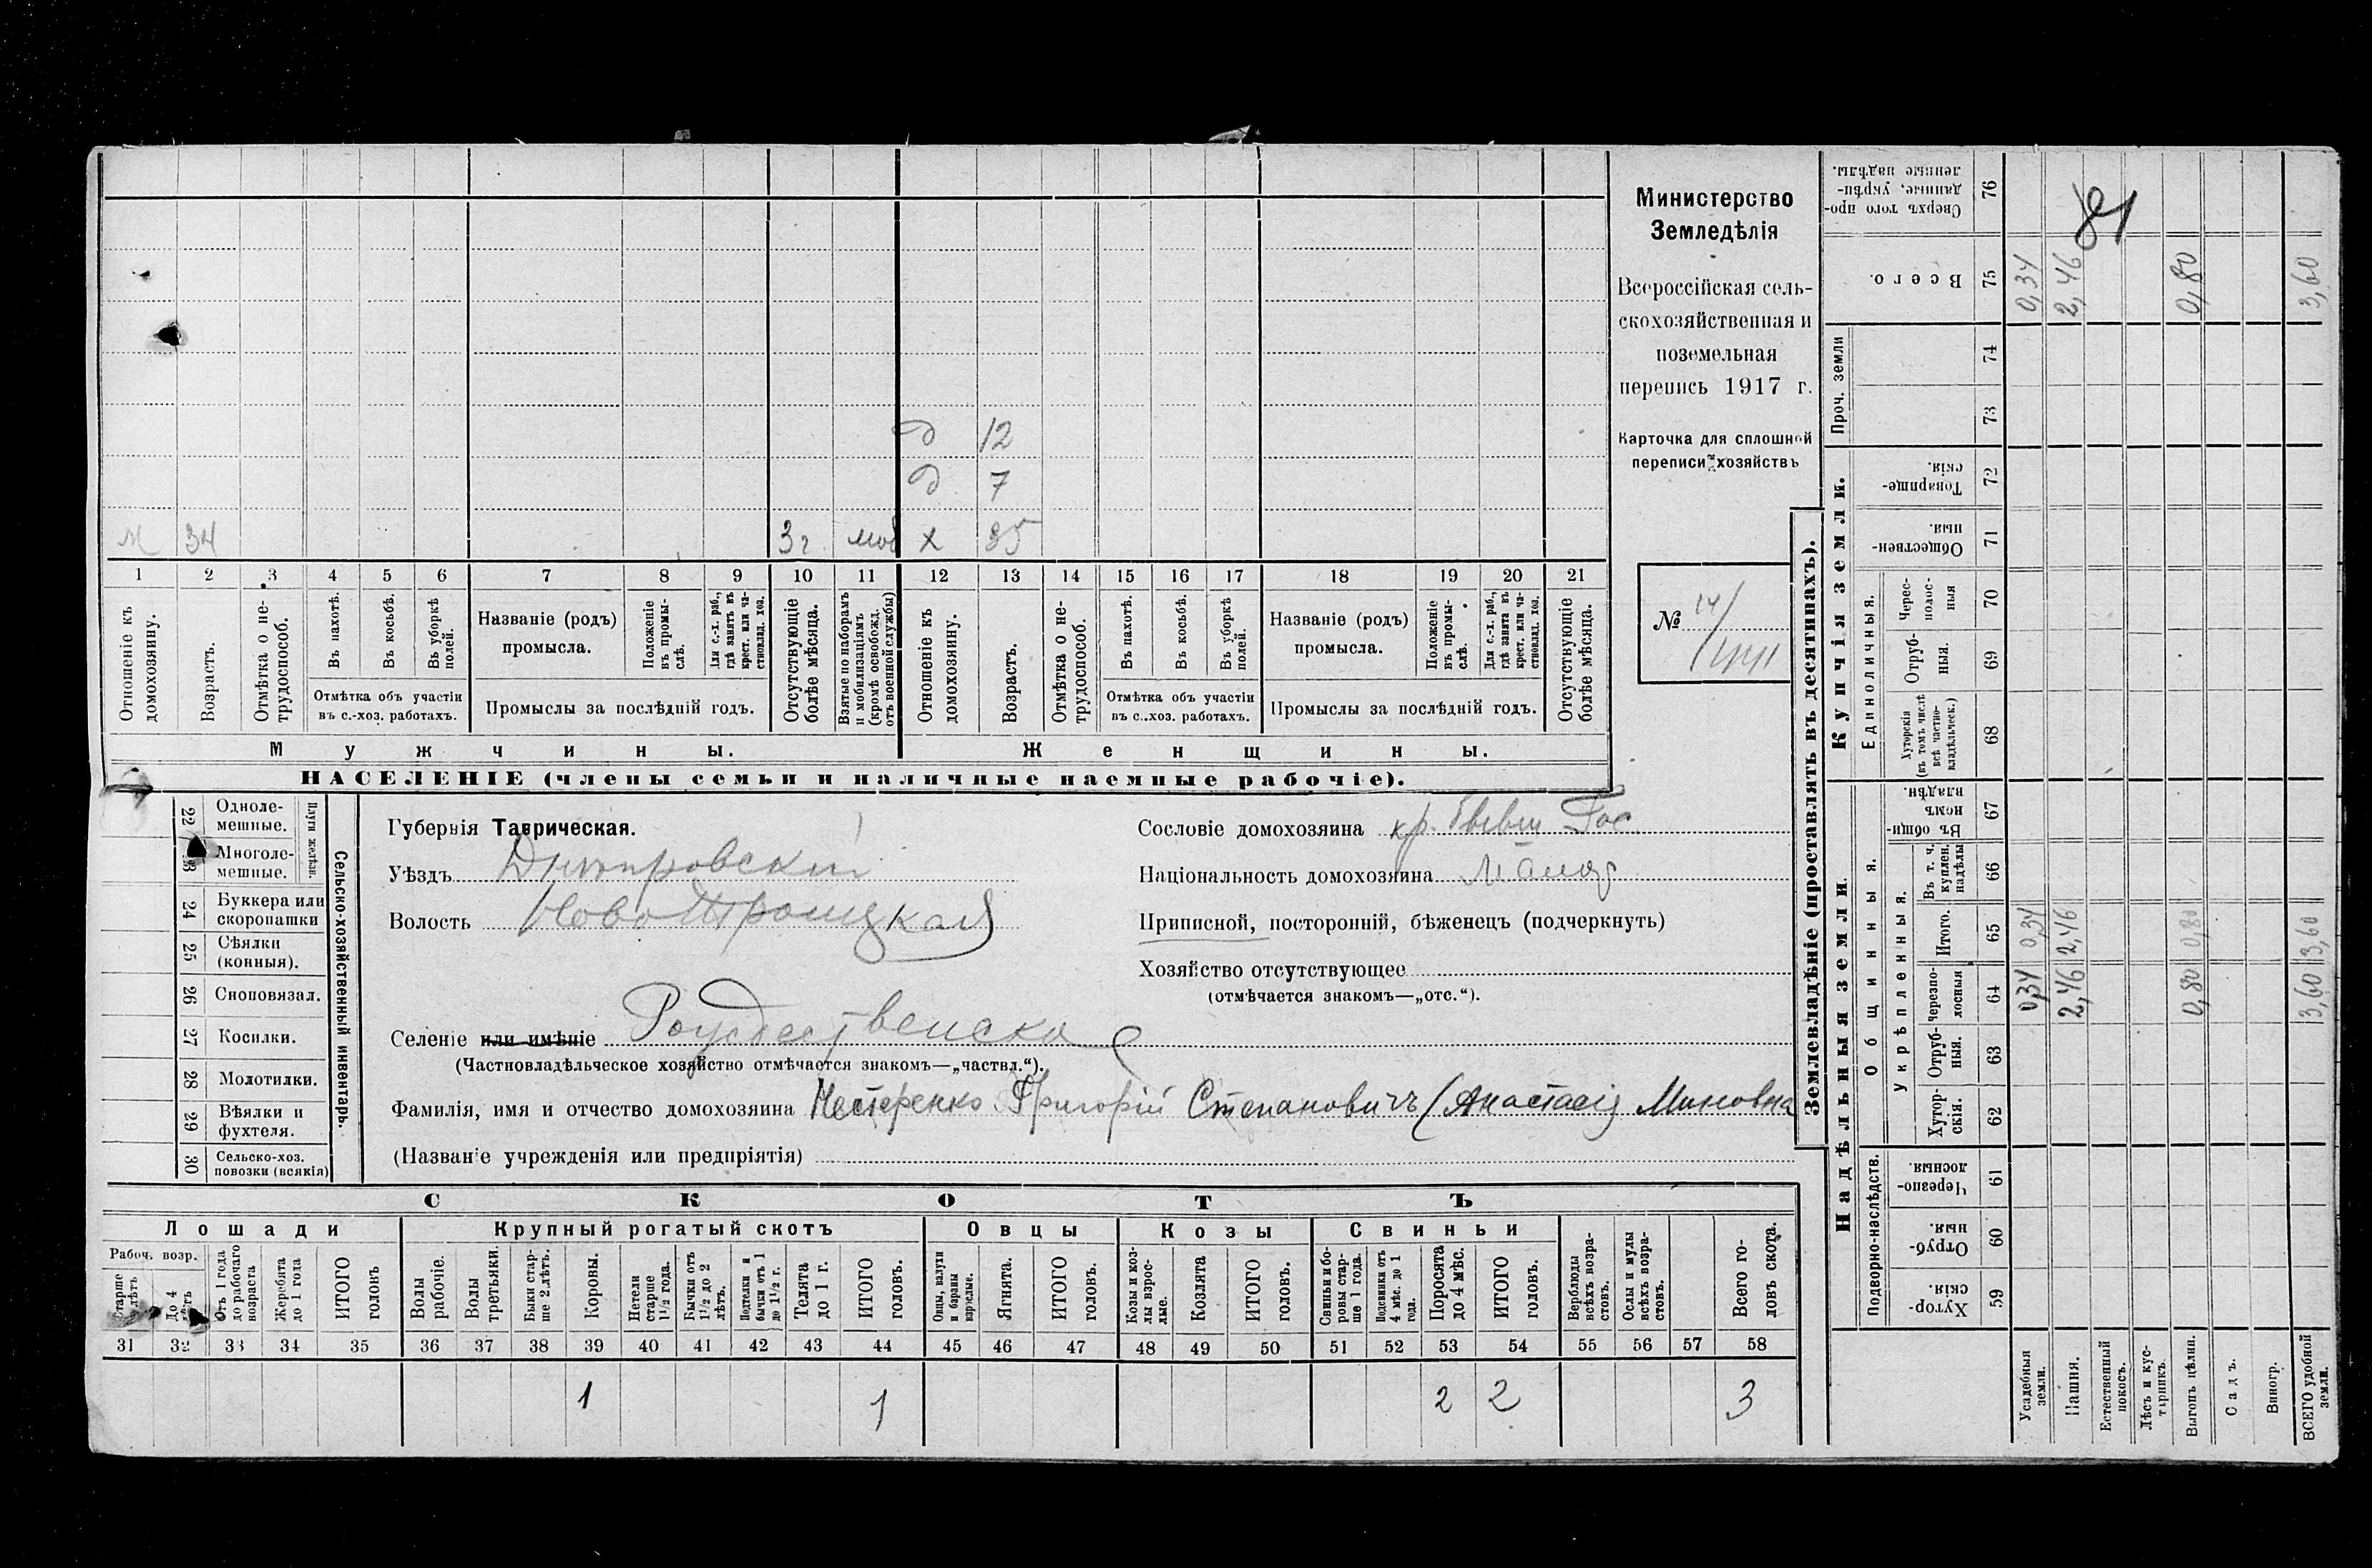 д 12
д 7
м 34 3 г. моб х 35
1 2 3 4 5 6 7 8 9 10 11 12 13 14 15 16 17 18 19 20 21
Отношеніе къ домохозяину.
Возрастъ.
Отмѣтка о нетрудоспособ.
Въ пахотѣ.
Въ косьбѣ.
Въ уборкѣ полей.
Отмѣтка объ участіи
въ с.-хоз. работахъ.
Названіе (родъ)
промысла.
Положеніе въ промыслѣ.
Для с.-х. раб., гдѣ занятъ въ крест. или частновлад. хоз.
Промыслы за послѣдній годъ.
Отсутствующіе болѣе мѣсяца.
Взятые по наборамъ и мобилизаціямъ (кромѣ освобожд. отъ военной службы)
Отношеніе къ домохозяину.
Возрастъ.
Отмѣтка о нетрудоспособ.
Въ пахотѣ.
Въ косьбѣ.
Въ уборкѣ полей.
Отмѣтка объ участіи
въ с.-хоз. работахъ.
Названіе (родъ)
промысла.
Положеніе въ промыслѣ.
Для с.-х. раб., гдѣ занята въ крест. или частновлад. хоз.
Промыслы за послѣдній годъ.
Отсутствующіе болѣе мѣсяца.
Мужчины.
Женщины.
НАСЕЛЕНІЕ (члены семьи и наличные наемные рабочіе).
Министерство
Земледѣлія
Всероссійская сель-
скохозяйственная и
поземельная
перепись 1917 г.
Карточка для сплошной
переписи хозяйствъ
№ 14/
22 Одноле-
мешные.
23 Многоле-
мешные.
Плуги желѣзн.
24 Буккера или
скоропашки
25 Сѣялки
(конныя).
26 Сноповязал.
27 Косилки.
28 Молотилки.
29 Вѣялки и
фухтеля.
30 Сельско-хоз.
повозки (всякія)
Сельско-хозяйственный инвентарь.
Губернія Таврическая.
Уѣздъ Днѣпровскій
Волость НовоТроицкая
Селеніе или имѣніе Рождественско
(Частновладѣльческое хозяйство отмѣчается знакомъ—„частвл.“).
Фамилія, имя и отчество домохозяина Нестеренко Григорій Степановичъ (Анастасія Миновна
(Названіе учрежденія или предпріятія)
Сословіе домохозяина кр. бывш Гос
Національность домохозяина малор
Приписной, посторонній, бѣженецъ (подчеркнуть)
Хозяйство отсутствующее
(отмѣчается знакомъ—„отс.“).
СКОТЪ
Лошади Крупный рогатый скотъ Овцы Козы Свиньи
Рабоч. возр.
Старше 4 лѣтъ
До 4 лѣтъ
Отъ 1 года до рабочаго возраста
Жеребята до 1 года
ИТОГО головъ
Волы рабочіе.
Волы третьяки.
Быки старше 2 лѣтъ.
Коровы.
Нетели старше 1½ года.
Бычки отъ 1½ до 2 лѣтъ.
Подтелки и бычки отъ 1 до 1½ г.
Телята до 1 г.
ИТОГО головъ.
Овцы, валухи и бараны взрослые.
Ягнята.
ИТОГО головъ.
Козы и козлы взрослые.
Козлята
ИТОГО головъ.
Свиньи и боровы старше 1 года.
Подсвинки отъ 4 мѣс. до 1 года.
Поросята до 4 мѣс.
ИТОГО головъ.
Верблюды всѣхъ возрастовъ.
Ослы и мулы всѣхъ возрастовъ.
Всего головъ скота.
31 32 33 34 35 36 37 38 39 40 41 42 43 44 45 46 47 48 49 50 51 52 53 54 55 56 57 58
1 1 2 2 3
Землевладѣніе (проставлять въ десятинахъ).
Купчія земли.
Надѣльныя земли
Сверхъ того проданные, укрѣпленные надѣлы. 76
81
Всего. 75 0,34 2,46 0,80 3,60
Проч. земли 74
73
Товарищескія. 72
Общественныя. 71
Единоличныя.
Чересполосныя 70
Отрубныя. 69
Хуторскія (въ томъ числѣ всѣ частновладѣльческ.) 68
Общинныя.
Въ общинномъ владѣн. 67
Укрѣпленныя.
Въ т. ч. куплен. надѣлы 66
Итого. 65 0,34 2,46 0,80 3,60
Черезполосныя 64 0,34 2,46 0,80 3,60
Отрубныя. 63
Хуторскія. 62
Подворно-наслѣдств.
Черезполосныя. 61
Отрубныя. 60
Хуторскія. 59
Усадебныя земли.
Пашня.
Естественный покосъ.
Лѣсъ и кустарникъ.
Выгонъ цѣлин.
Садъ.
Виногр.
ВСЕГО удобной земли.